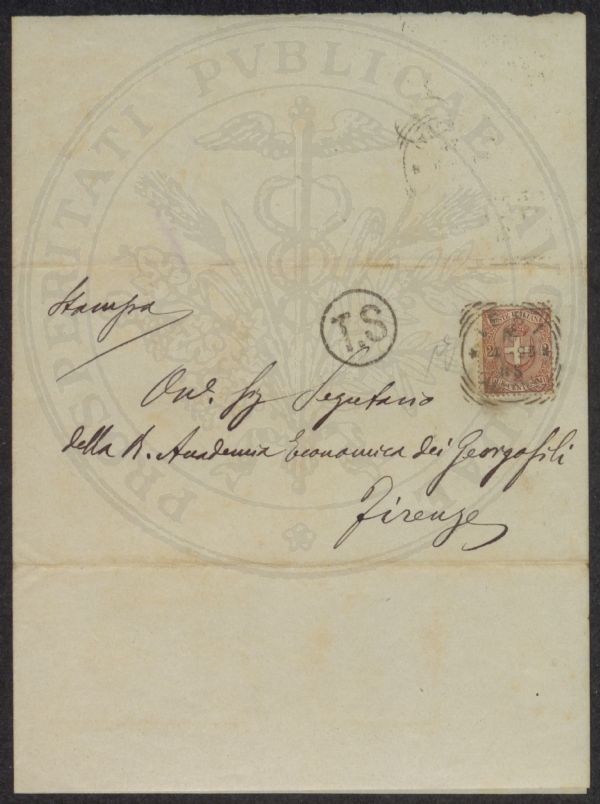 PROSPERITATI PVBLICAE AVGENDAE
Stampa
T.S
POSTE ITALIANE
Onᵉ. Sig Segretario
della R. Accademia Economica dei Georgofili
Firenze